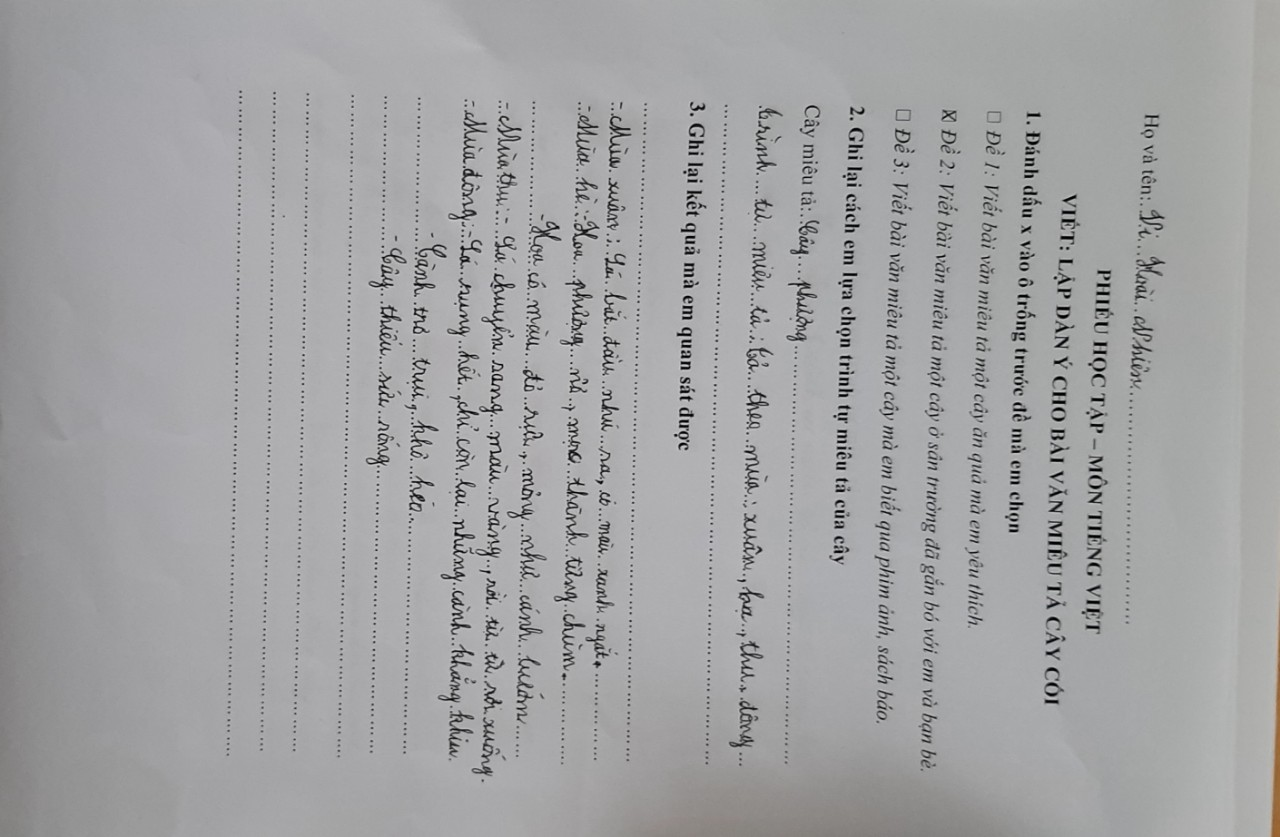 Họ và tên: Di Hoài Nhiên
PHIẾU HỌC TẬP – MÔN TIẾNG VIỆT
VIẾT: LẬP DÀN Ý CHO BÀI VĂN MIÊU TẢ CÂY CÓI
1. Đánh dấu x vào ô trống trước đề mà em chọn
☐ Đề 1: Viết bài văn miêu tả một cây ăn quả mà em yêu thích.
☒ Đề 2: Viết bài văn miêu tả một cây ở sân trường đã gắn bó với em và bạn bè.
☐ Đề 3: Viết bài văn miêu tả một cây mà em biết qua phim ảnh, sách báo.
2. Ghi lại cách em lựa chọn trình tự miêu tả của cây
Cây miêu tả: Cây phượng
trình tự miêu tả: tả theo mùa: xuân, hạ, thu, đông
3. Ghi lại kết quả mà em quan sát được
- Mùa xuân: Lá bắt đầu nhú ra, có màu xanh ngát.
- Mùa hè: - Hoa phượng nở, mọc thành từng chùm.
- Hoa có màu đỏ rực, mỏng như cánh bướm
- Mùa thu: - Lá chuyển sang màu vàng, rồi từ từ rơi xuống.
- Mùa đông: - Lá rụng hết, chỉ còn lại những cành khẳng khiu.
- Cành trơ trụi, khô héo
- Cây thiếu sức sống